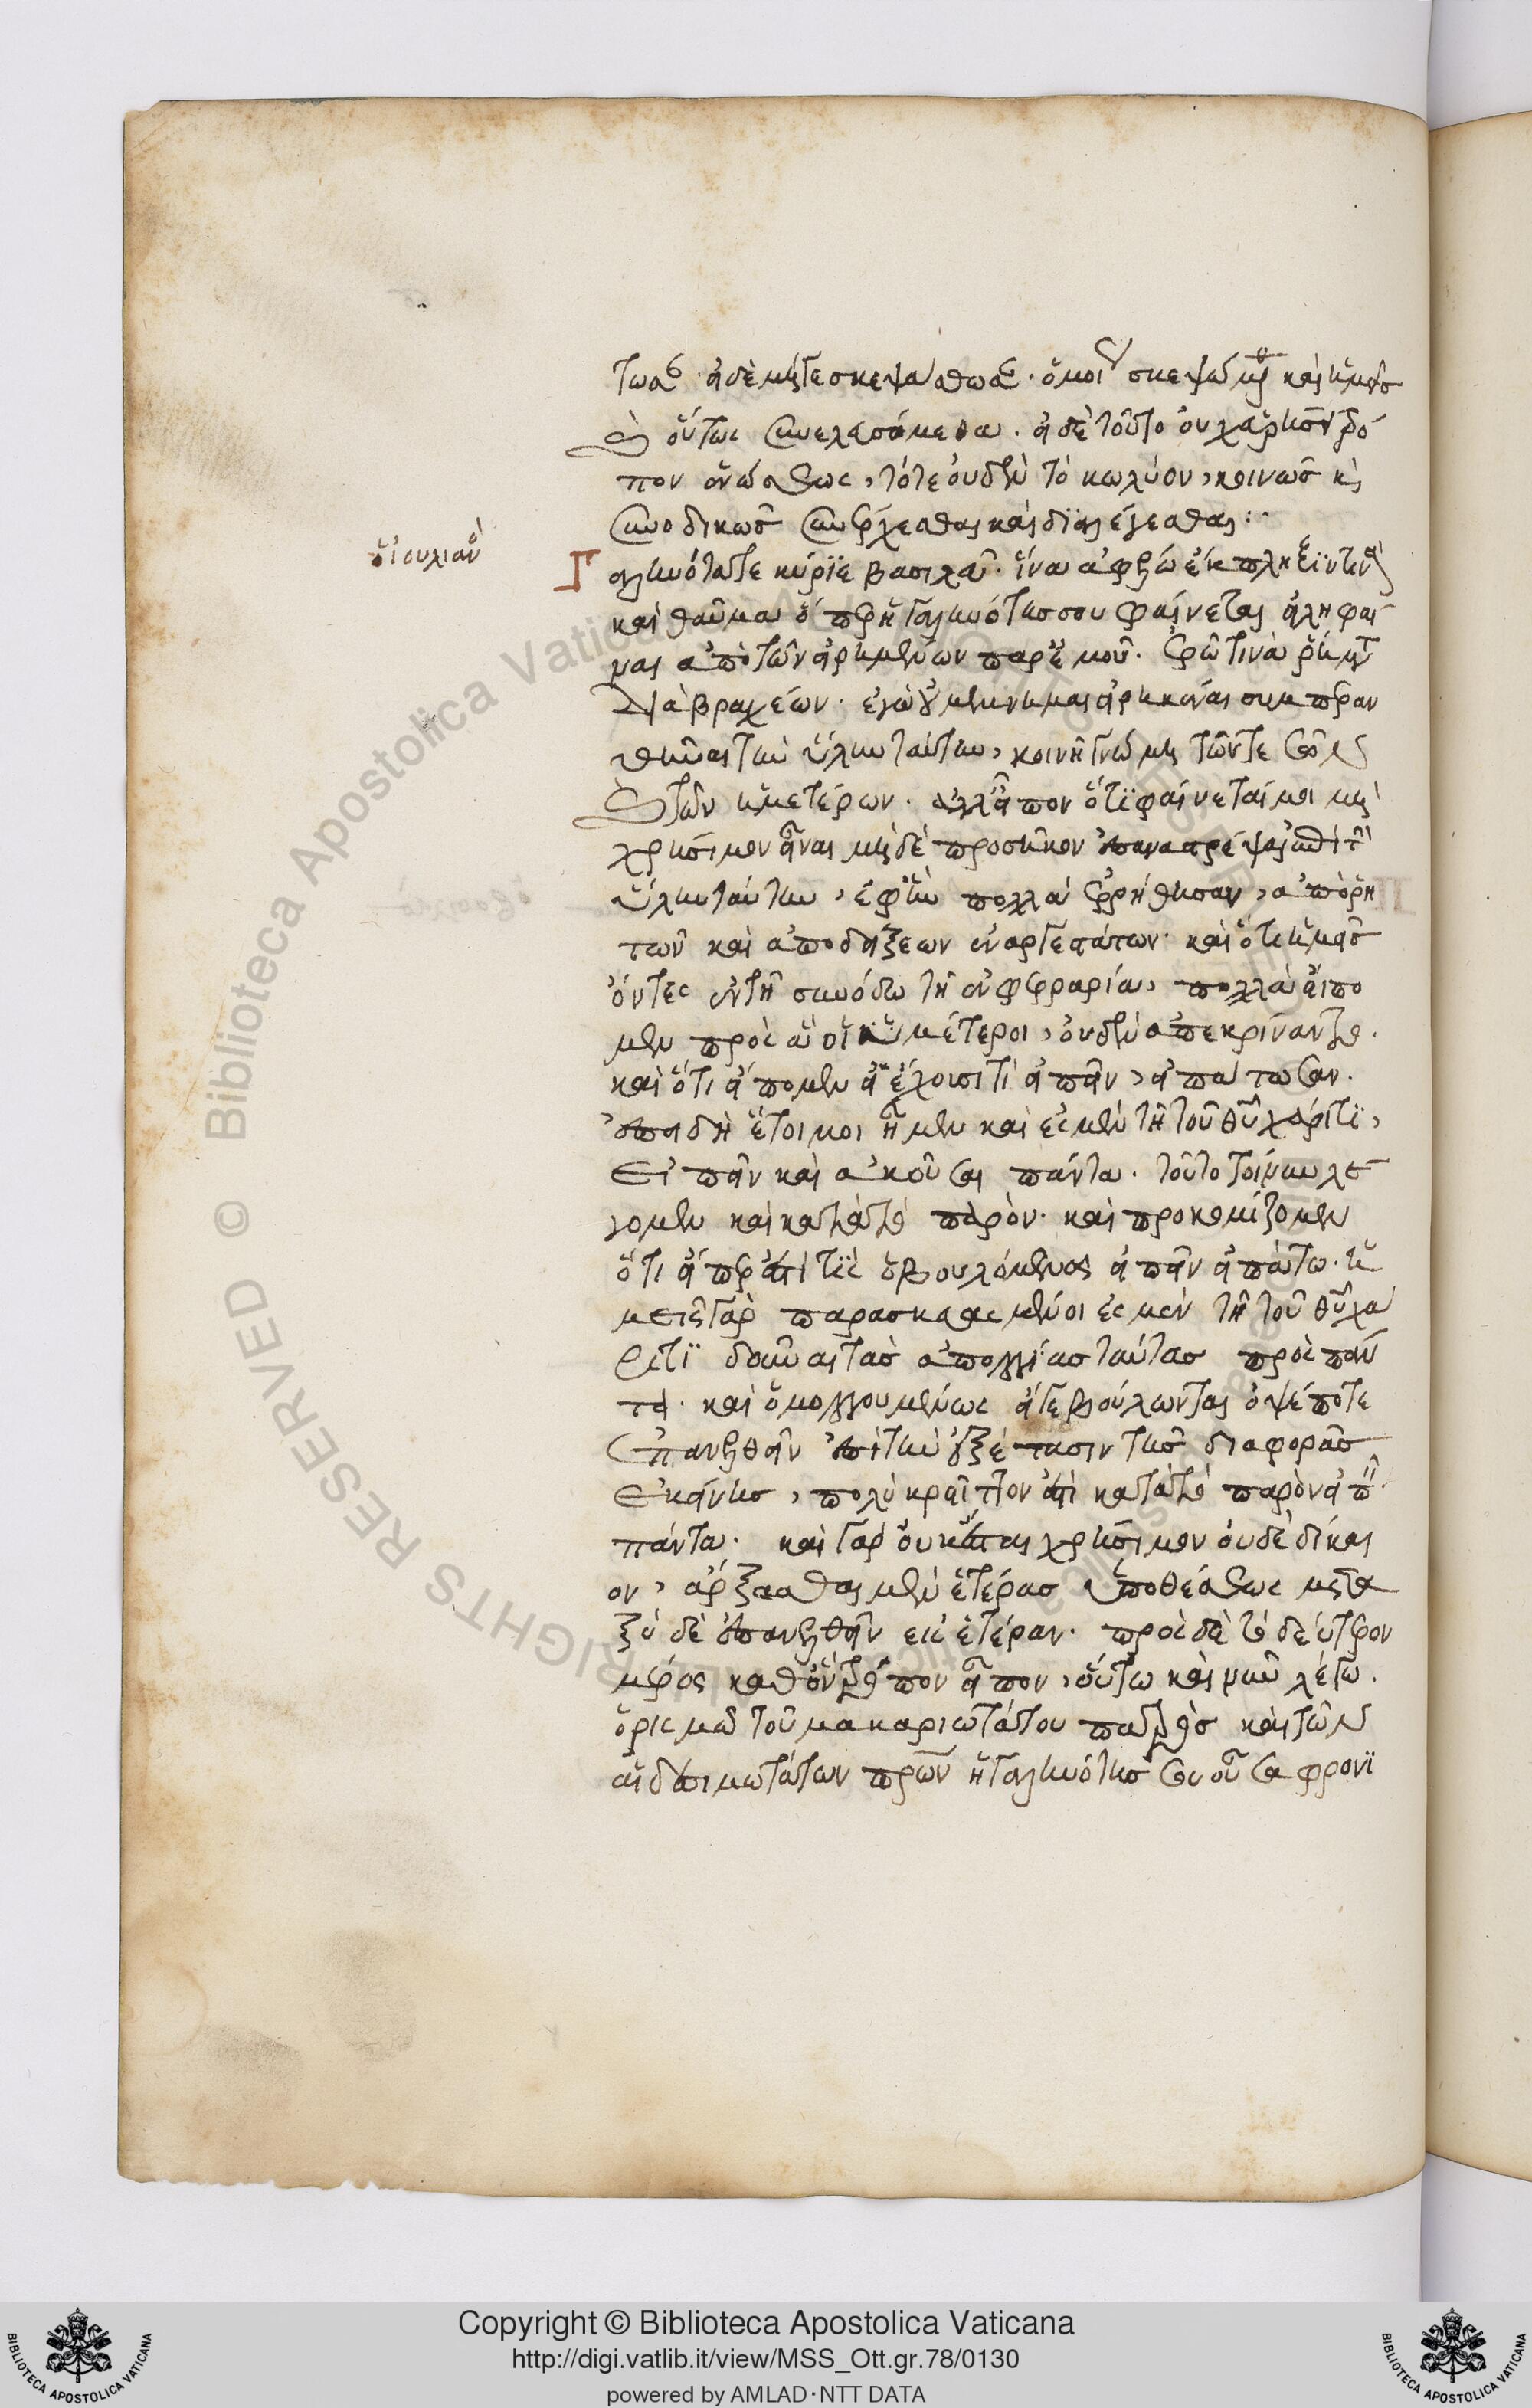 τωσαν· εἰ δὲ μή γε σκεψάσθωσαν· ὁμοίως σκεψώμεθα καὶ ἡμεῖς
καὶ οὕτως συνελασόμεθα. εἰ δὲ τοῦτο οὐχ τρό
πον ἑνώσεως, τότε οὐδὲν τὸ κωλύον, κοινῶς καὶ
συνοδικῶς συνέρχεσθαι καὶ διαλέγεσθαι:
ὁ ἰουλιανὸς
Γαληνότατε κύριε βασιλεῦ. ἵνα
καὶ θαῦμα ὅπερ ἡ γαληνότης σου φαίνεται εἰληφέ
ναι ἀπὸ τῶν εἰρημένων παρ' ἐμοῦ. ἐρῶ τινὰ ῥητ
διὰ βραχέων. ἐγὼ μέμνημαι εἰρηκέναι συμπεραν
θῆναι τὴν ὕλην ταύτην, κοινῇ γνώμῃ τῶν τε σῶν
καὶ τῶν ἡμετέρων. ἀλλ' εἶπον ὅτι φαίνεταί μοι μὴ
χρήσιμον εἶναι μηδὲ προσῆκον ἐπαναστρέψαι ἐπὶ τὴν
ὕλην ταύτην, ἐφ' ἣν πολλὰ ἐρρήθησαν, ἀπὸ ῥη
τῶν καὶ ἀποδείξεων ἐναργεστάτων. καὶ ὅτι ἡμεῖς
ὄντες ἐν τῇ συνόδω τῇ ἐν φερραρία, πολλὰ εἴπο
μεν πρὸς ἃ οἱ ὑμέτεροι, οὐδὲν ἀπεκρίναντο.
καὶ ὅτι εἴπομεν εἰ ἔχοισι τὶ εἰπεῖν, εἰπάτωσαν.
ἐπειδὴ ἕτοιμοι ἦμεν καὶ ἐσμὲν τῇ τοῦ θεοῦ χάριτι,
εἰπεῖν καὶ ἀκοῦσαι πάντα. τοῦτο τοίνυν λέ
γομεν καὶ κατὰ τὸ παρόν. καὶ προκομίζομεν
ὅτι εἴπερ ἐστί τις ὁ βουλόμενος εἰπεῖν εἰπάτω. ἡ
μεῖς γὰρ παρασκευασμένοι ἐσμὲν τῇ τοῦ θεοῦ χά
ριτι δοῦναι τὰς ἀπολογίας ταύτας πρὸς πάν
τα. καὶ ὁμολογουμένως εἴγε βούλωνται ὀψέποτε
ἐπανελθεῖν ἐπὶ τὴν ἐξέτασιν τῆς διαφορᾶς
ἐκείνης, πολὺ κρεῖττον ἐστὶ κατὰ τὸ παρὸν εἰπεῖν
πάντα. καὶ γὰρ οὐκ ἔσται χρήσιμον οὐδὲ δίκαι
ον, ἄρξασθαι μὲν ἑτέρας ὑποθέσεως μετα
ξὺ δὲ ἐπανελθεῖν εἰς ἑτέραν. πρὸς δὲ τὸ δεύτερον
μέρος καθ' ὃν τρόπον εἶπον, οὕτω καὶ νῦν λέγω.
ὁρισμῶ τοῦ μακαριωτάτου πατρὸς καὶ τῶν
αἰδεσιμωτάτων πατέρων ἡ γαληνότης σου οὖσα φρονί
Copyright © Biblioteca Apostolica Vaticana
http://digi.vatlib.it/view/MSS_Ott.gr.78/0130
powered by AMLAD·NTT DATA